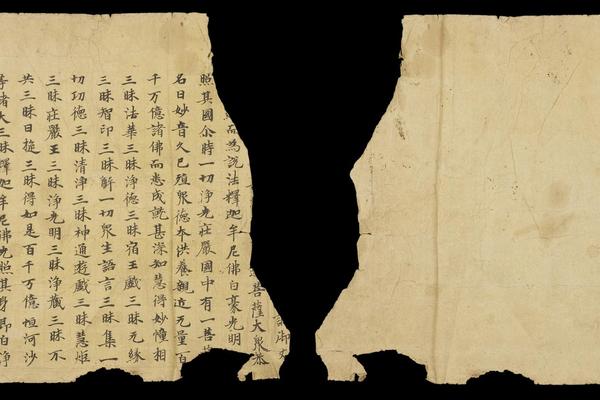 御丈
菩薩大衆恭
而為說法釋迦牟尼佛白豪光明
照其國尒時一切淨光莊嚴國中有一菩
名曰妙音久已殖衆德本供養親近无量百
千万億諸佛而悉成就甚深知慧得妙幢相
三昧法華三昧淨德三昧宿王戲三昧无緣
三昧智印三昧解一切衆生語言三昧集一
切功德三昧清淨三昧神通遊戲三昧慧炬
三昧莊嚴王三昧淨光明三昧淨藏三昧不
共三昧日旋三昧得如是百千万億恒河沙
等諸大三昧釋迦牟尼佛光照其身即白淨